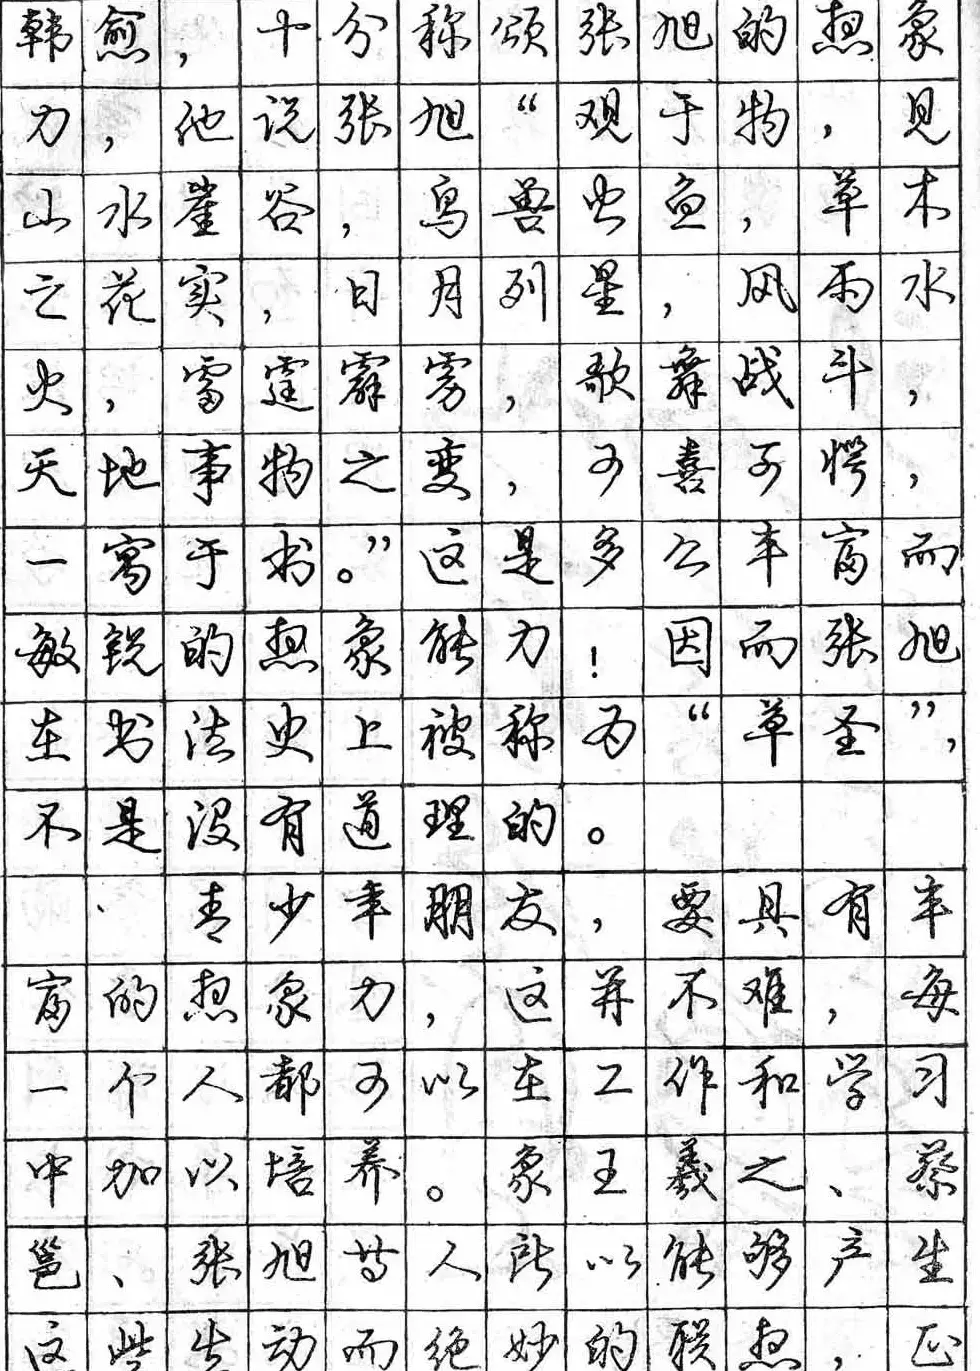 韩愈，十分称颂张旭的想象
力，他说张旭“观于物，见
山水崖谷，鸟兽虫鱼，草木
之花实，日月列星，风雨水
火，雷霆霹雳，歌舞战斗，
天地事物之变，可喜可愕，
一寓于书。”这是多么丰富而
敏锐的想象能力！因而张旭
在书法史上被称为“草圣”，
不是没有道理的。
青少年朋友，要具有丰
富的想象力，这并不难，每
一个人都可以在工作和学习
中加以培养。象王羲之、蔡
邕、张旭等人所以能够产生
这些生动而绝妙的联想，正